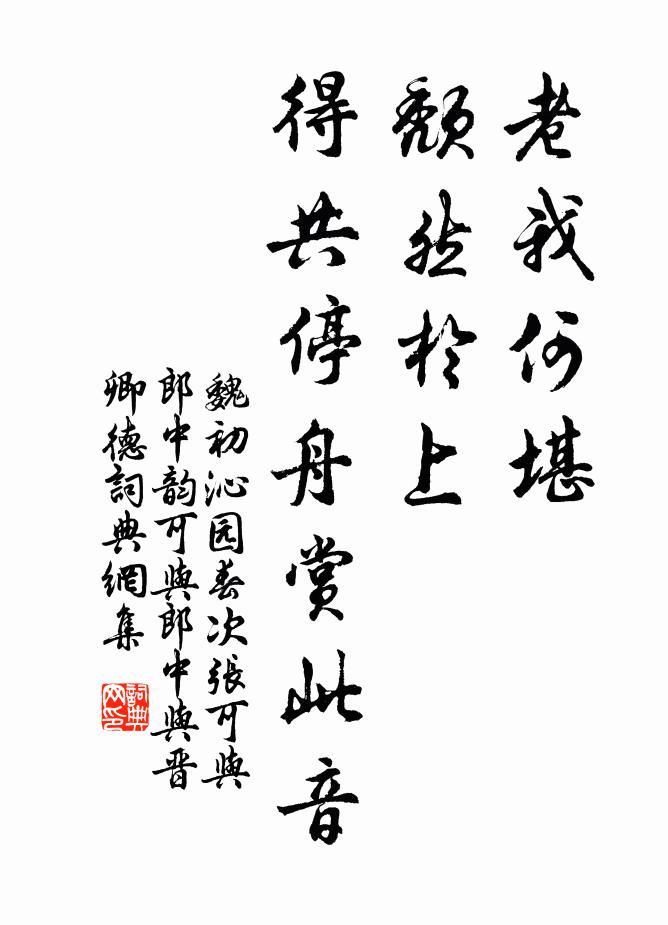 老我何堪
颓然於上
得共停舟赏此音
魏初沁园春次張可與
郎中韵可與郎中與晋
卿德詞典網集
詞典网印